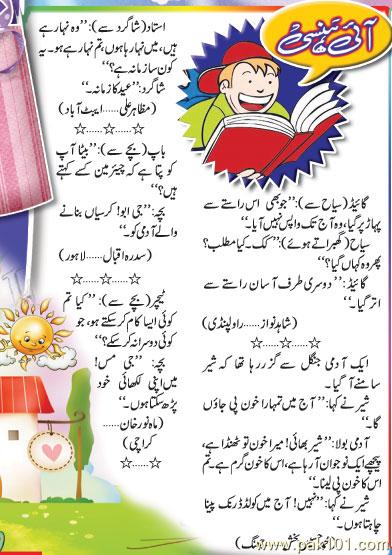 آئی ہنسی
گائیڈ (سیاح سے): ’’جو بھی اس راستے سے
پہاڑ پر گیا، وہ آج تک واپس نہیں آیا۔‘‘
سیاح (گھبراتے ہوئے): ’’کک۔ کیا مطلب؟
پھر وہ کہاں گیا؟‘‘
گائیڈ: ’’دوسری طرف آسان راستے سے
اتر گیا۔‘‘
(شاہد نواز ...... راولپنڈی)
☆......☆......☆
ایک آدمی جنگل سے گزر رہا تھا کہ شیر
سامنے آ گیا۔
شیر نے کہا: ’’آج میں تمہارا خون پی جاؤں
گا۔‘‘
آدمی بولا: ’’شیر بھائی! میرا خون تو ٹھنڈا ہے،
پیچھے ایک نوجوان آ رہا ہے، اس کا خون گرم ہے۔ تم
اس کا خون پی لینا۔‘‘
شیر نے کہا: ’’نہیں! آج میں کولڈ ڈرنک پینا
چاہتا ہوں۔‘‘
بخش ...... جھنگ)
استاد (شاگرد سے): ’’وہ نہا رہے
ہیں، میں نہا رہا ہوں، تم نہا رہے ہو۔ یہ
کون سا زمانہ ہے؟‘‘
شاگرد: ’’عید کا زمانہ۔‘‘
(مظاہر علی ...... ایبٹ آباد)
☆......☆......☆
باپ (بچے سے): ’’بیٹا آپ
کو پتا ہے کہ چیئرمین کسے کہتے
ہیں؟‘‘
بچہ: ’’جی ابو! کرسیاں بنانے
والے آدمی کو۔‘‘
(سدرہ اقبال ...... لاہور)
☆......☆......☆
ٹیچر (بچے سے): ’’کیا تم
کوئی ایسا کام کر سکتے ہو، جو
کوئی دوسرا نہ کر سکے؟‘‘
بچہ: ’’جی مس!
میں اپنی لکھائی خود
پڑھ سکتا ہوں۔‘‘
(ماہ نور خان ......
کراچی)
☆......☆......☆
www.pak101.com